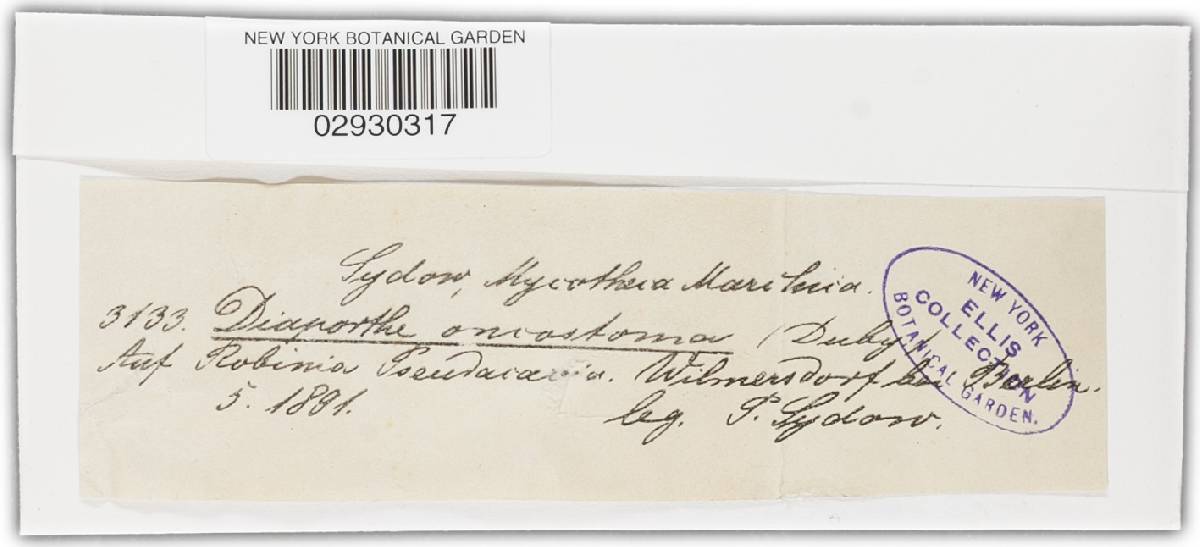 NEW YORK BOTANICAL GARDEN
02930317
Sydow, Mycotheca Marchica.
3133. Diaporthe oncostoma (Duby).
Auf Robinia Pseudacacia. Wilmersdorf bei Berlin.
5. 1891. leg. P. Sydow.
NEW YORK
ELLIS
COLLECTION
BOTANICAL GARDEN.